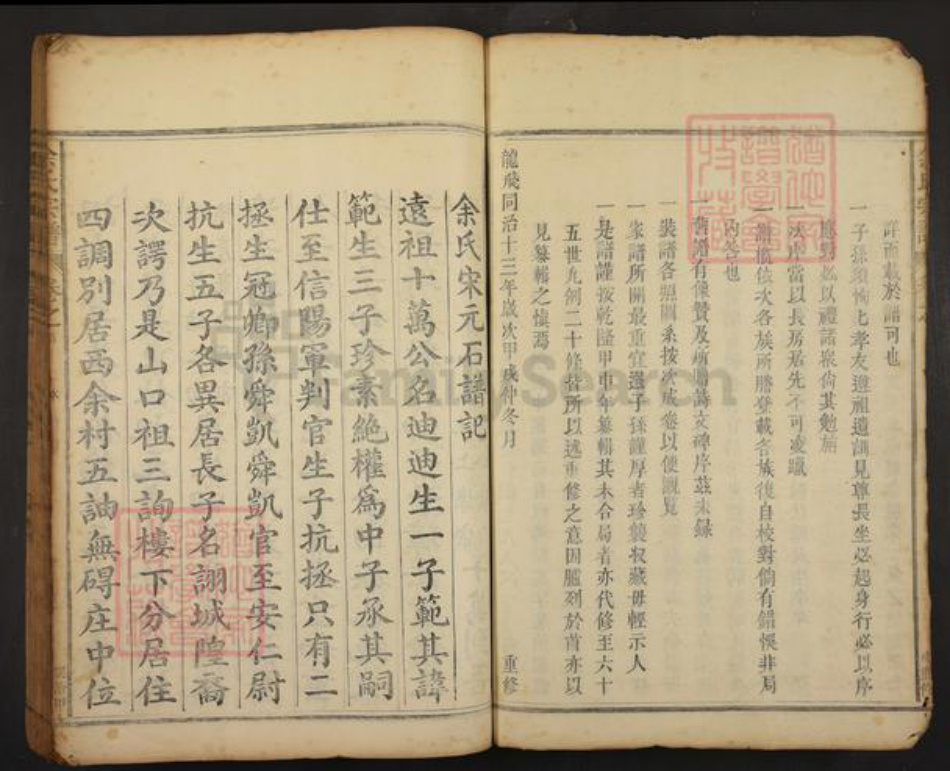 詳而載於譜可也
一子孫須愉上孝友遵祖遺訓見尊長坐必起身行必以序
應對必以禮諸衆倘其勉旃
一次序當以長房居先不可凌躐
一譜依次各族所勝登載各族復自校對倘有錯悞非局
內咎也
一舊譜有像贊及所贈詩文碑序茲未錄
一裝譜各照圖系按次成卷以便觀覽
一宗譜所關最重宜選子孫謹厚者珍襲收藏毋輕示人
一是譜謹按乾隆甲申年纂輯其未合局者亦代修至六十
五世凡例二十條皆所以述重修之意因臚列於首亦以
見纂輯之慎焉
龍飛同治十三年歲次甲戌仲冬月 重修
余氏宋元石譜記
遠祖十萬公名迪迪生一子範其諱
範生三子珍素絶權爲中子承其嗣
仕至信陽軍判官生子抗拯只有二
拯生冠卿孫舜凱舜凱官至安仁尉
抗生五子各異居長子名詡城隍裔
次諤乃是山口祖三詢樓下分居住
四調別居西余村五詘無碍庄中位
FamilySearch